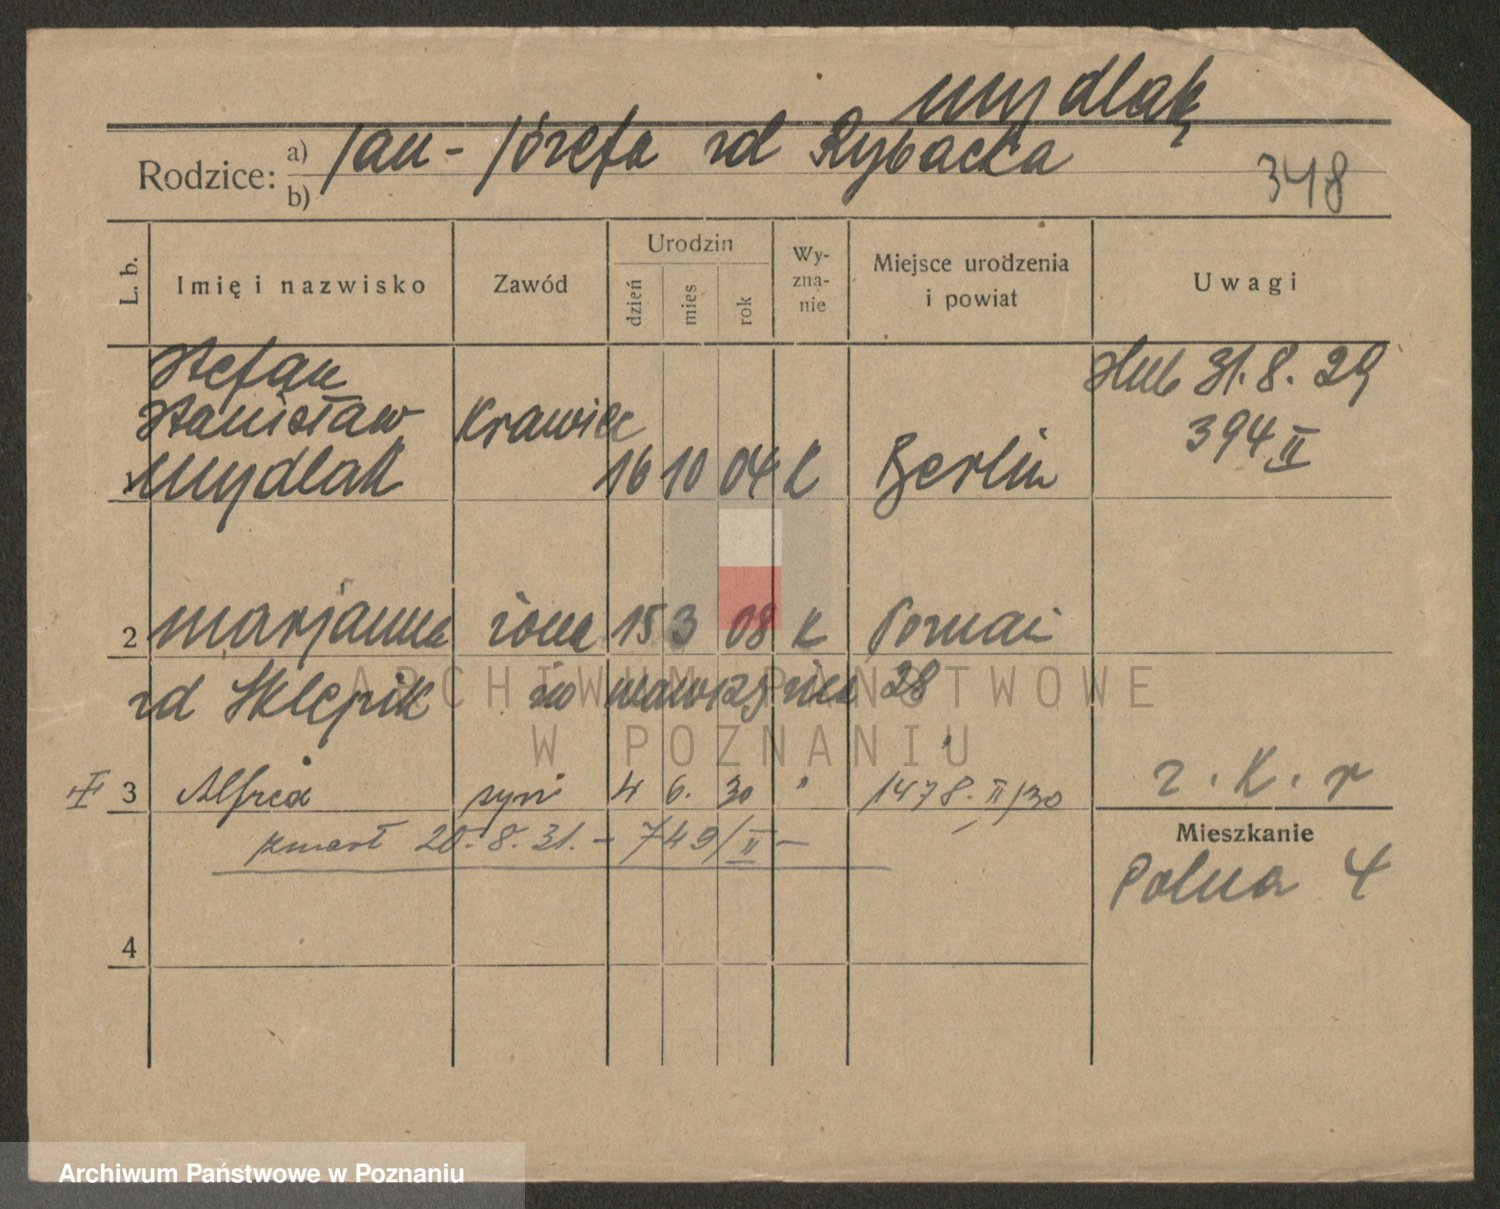 Mydlak
Rodzice: a) Jan - Józefa zd Rybacka
b)
348
L. b. Imię i nazwisko Zawód Urodzin dzień mies rok Wy-zna-nie Miejsce urodzenia i powiat Uwagi
Stefan
Stanisław Krawiec
Mydlak 16 10 04 k Berlin
ślub 31.8.29
394 II
2 Marjanna żona 15 3 08 k Poznań
zd Sklepik Wawrzyńca 28
3 Alfred syn 4 6. 30 " 1478. II/30
z. K. r
zmarł 20.8.31. - 749/II -
Mieszkanie
Polna 4
4
ARCHIWUM PAŃSTWOWE
W POZNANIU
Archiwum Państwowe w Poznaniu